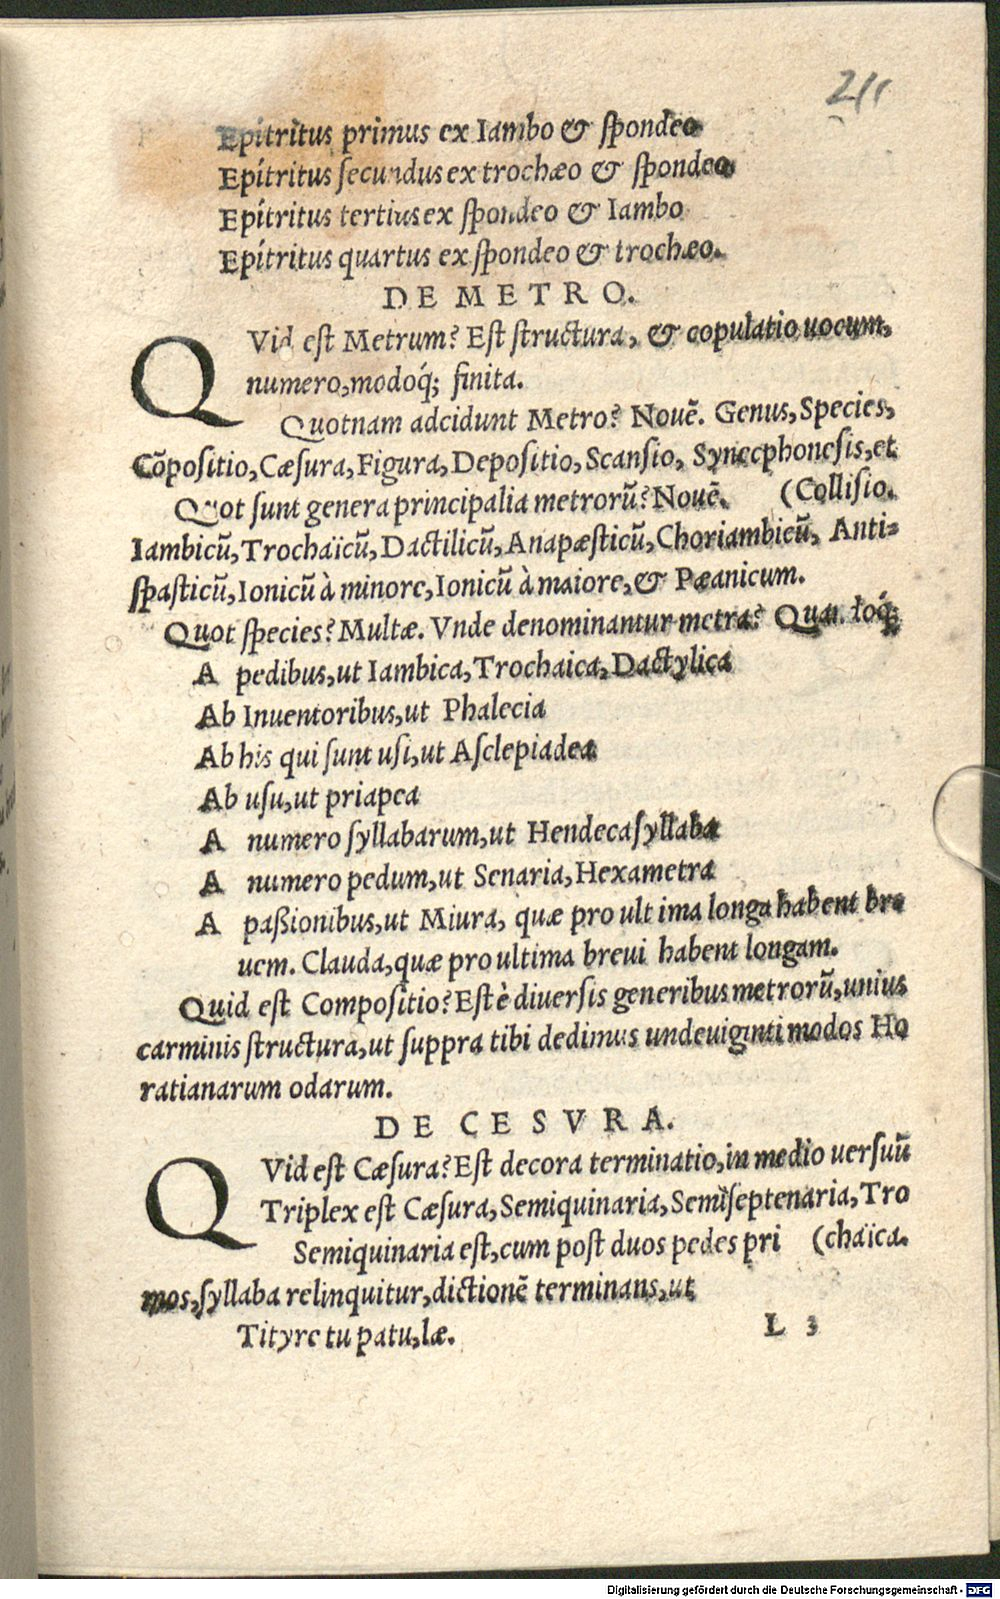 211
Epitritus primus ex Iambo & ſpondeo
Epitritus ſecundus ex trochæo & ſpondeo
Epitritus tertius ex ſpondeo & Iambo
Epitritus quartus ex ſpondeo & trochæo.
DE METRO.
QVid eſt Metrum? Eſt ſtructura, & copulatio uocum,
numero,modoq́; finita.
Quotnam adcidunt Metro? Nouē. Genus,Species,
Cōpoſitio,Cæſura,Figura,Depoſitio,Scanſio, Synecphoneſis,et
Quot ſunt genera principalia metrorū?Nouē. (Colliſio.
Iambicū,Trochaïcū,Dactilicū,Anapæſticū,Choriambicū, Anti-
ſpaſticū,Ionicū à minore,Ionicū à maiore,& Pæanicum.
Quot ſpecies?Multæ. Vnde denominantur metra?
A pedibus,ut Iambica,Trochaica,Dactylica
Ab Inuentoribus,ut Phalecia
Ab his qui ſunt uſi,ut Aſclepiadea
Ab uſu,ut priapea
A numero ſyllabarum,ut Hendecaſyllaba
A numero pedum,ut Senaria,Hexametra
A paßionibus,ut Miura, quæ pro ultima longa habent bre
uem. Clauda,quæ pro ultima brevi habent longam.
Quid eſt Compoſitio?Eſt è diuerſis generibus metrorū,unius
carminis ſtructura,ut ſuppra tibi dedimus undeuiginti modos Ho
ratianarum odarum.
DE CESVRA.
QVid eſt Cæſura?Eſt decora terminatio,in medio uerſuū
Triplex eſt Cæſura,Semiquinaria,Semiſeptenaria,Tro
Semiquinaria eſt,cum poſt duos pedes pri (chaïca.
mos,ſyllaba relinquitur,dictionē terminans,ut
Tityre tu patu,læ.
L 3
Digitalisierung gefördert durch die Deutsche Forschungsgemeinschaft - DFG